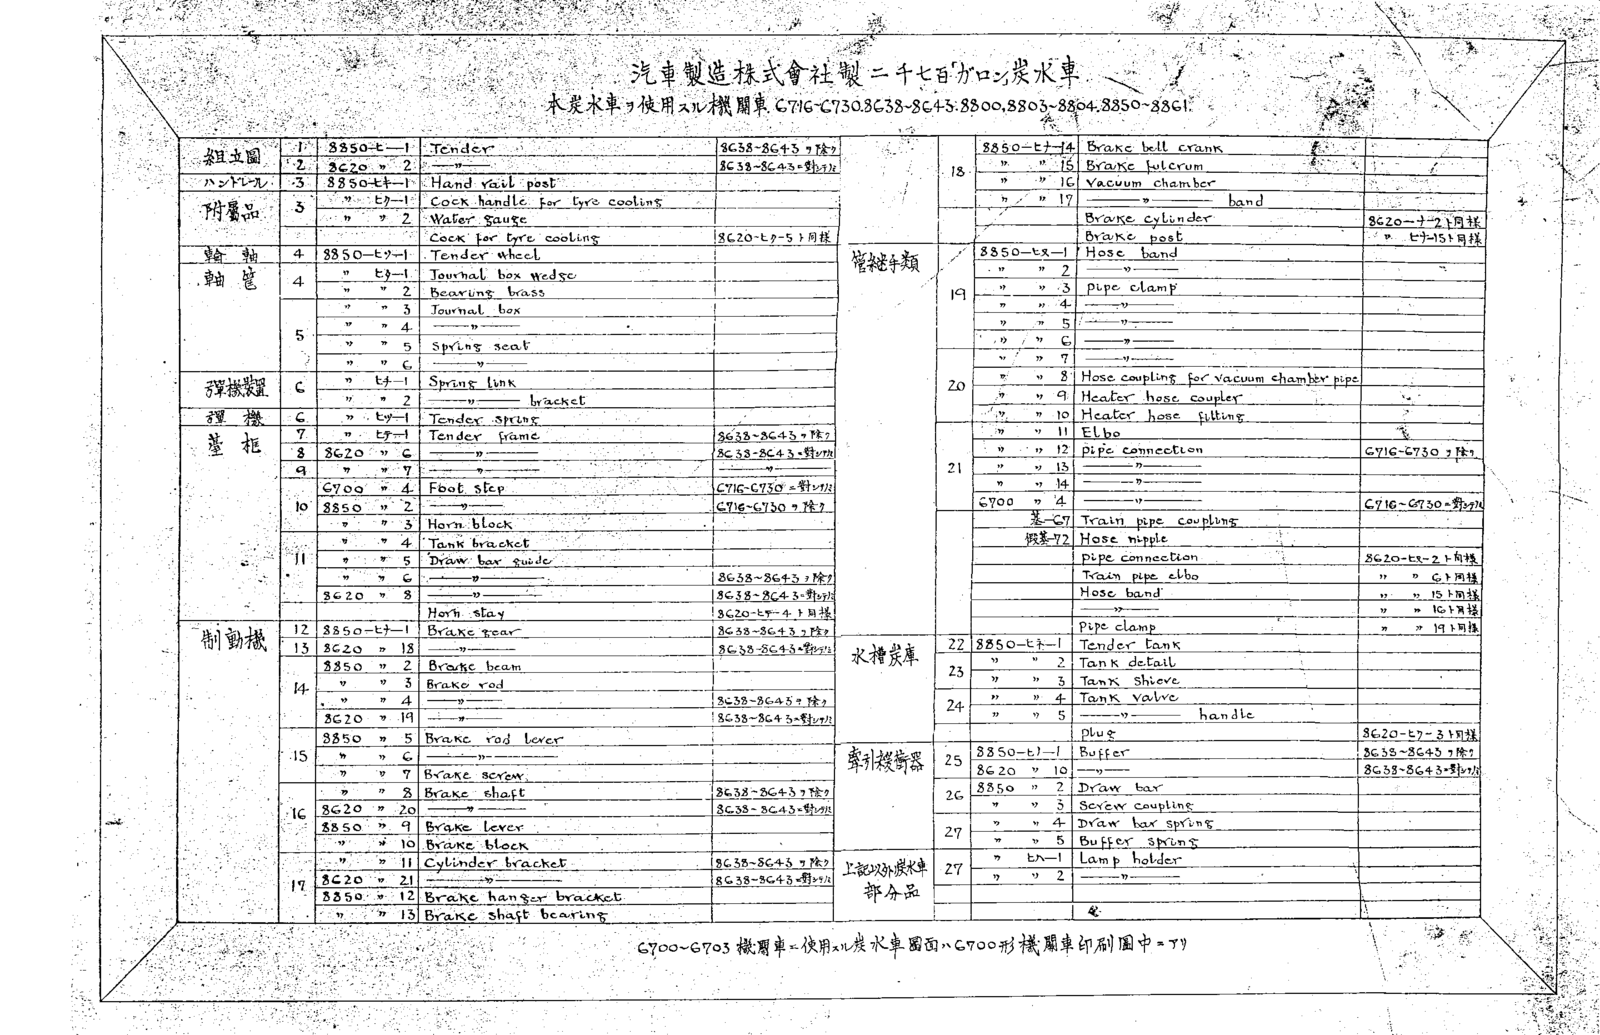 汽車製造株式會社製二千七百ガロン炭水車
本炭水車ヲ使用スル機關車 6716~6730.8638~8643.8800,8803~8804.8850~8861.
組立圖 1 8850-ヒ-1 Tender 8638~8643ヲ除ク
2 8620 〃 2 〃 8638~8643ニ對シテノミ
ハンドレール 3 8850-ヒキ-1 Hand rail post
附屬品 3 〃 ヒク-1 Cock handle for tyre cooling
〃 〃 2 Water gauge
Cock for tyre cooling 8620-ヒク-5ト同様
輪軸 4 8850-ヒソ-1 Tender wheel
軸筐 4 〃 ヒタ-1 Journal box wedge
〃 〃 2 Bearing brass
5 〃 〃 3 Journal box
〃 〃 4 〃
〃 〃 5 Spring seat
〃 〃 6 〃
彈機裝置 6 〃 ヒチ-1 Spring link
〃 〃 2 〃 bracket
彈機 6 〃 ヒツ-1 Tender spring
臺框 7 〃 ヒテ-1 Tender frame 8638~8643ヲ除ク
8 8620 〃 6 〃 8638~8643ニ對シテノミ
9 〃 〃 7 〃 〃
10 6700 〃 4 Foot step 6716~6730ニ對シテノミ
8850 〃 2 〃 6716~6730ヲ除ク
〃 〃 3 Horn block
11 〃 〃 4 Tank bracket
〃 〃 5 Draw bar guide
〃 〃 6 〃 8638~8643ヲ除ク
8620 〃 8 〃 8638~8643ニ對シテノミ
Horn stay 8620-ヒテ-4ト同様
制動機 12 8850-ヒナ-1 Brake gear 8638~8643ヲ除ク
13 8620 〃 18 〃 8638~8643ニ對シテノミ
14 8850 〃 2 Brake beam
〃 〃 3 Brake rod
〃 〃 4 〃 8638~8643ヲ除ク
8620 〃 19 〃 8638~8643ニ對シテノミ
15 8850 〃 5 Brake rod lever
〃 〃 6 〃
〃 〃 7 Brake screw
16 〃 〃 8 Brake shaft 8638~8643ヲ除ク
8620 〃 20 〃 8638~8643ニ對シテノミ
8850 〃 9 Brake lever
〃 〃 10 Brake block
17 〃 〃 11 Cylinder bracket 8638~8643ヲ除ク
8620 〃 21 〃 8638~8643ニ對シテノミ
8850 〃 12 Brake hanger bracket
〃 〃 13 Brake shaft bearing
18 8850-ヒナ-14 Brake bell crank
〃 〃 15 Brake fulcrum
〃 〃 16 Vacuum chamber
〃 〃 17 〃 band
Brake cylinder 8620-ナ-2ト同様
Brake post 〃 ヒナ-15ト同様
管継手類 19 8850-ヒヌ-1 Hose band
〃 〃 2 〃
〃 〃 3 Pipe clamp
〃 〃 4 〃
〃 〃 5 〃
〃 〃 6 〃
20 〃 〃 7 〃
〃 〃 8 Hose coupling for vacuum chamber pipe
〃 〃 9 Heater hose coupler
〃 〃 10 Heater hose fitting
21 〃 〃 11 Elbo
〃 〃 12 Pipe connection 6716~6730ヲ除ク
〃 〃 13 〃
〃 〃 14 〃
6700 〃 4 〃 6716~6730ニ對シテノミ
基-67 Train pipe coupling
假基-72 Hose nipple
Pipe connection 8620-ヒヌ-2ト同様
Train pipe elbo 〃 〃 6ト同様
Hose band 〃 〃 15ト同様
〃 〃 〃 16ト同様
Pipe clamp 〃 〃 19ト同様
水槽炭庫 22 8850-ヒネ-1 Tender tank
23 〃 〃 2 Tank detail
〃 〃 3 Tank shieve
24 〃 〃 4 Tank valve
〃 〃 5 〃 handle
Plug 8620-ヒク-3ト同様
牽引緩衝器 25 8850-ヒノ-1 Buffer 8638~8643ヲ除ク
8620 〃 10 〃 8638~8643ニ對シテノミ
26 8850 〃 2 Draw bar
〃 〃 3 Screw coupling
27 〃 〃 4 Draw bar spring
〃 〃 5 Buffer spring
上記以外炭水車 27 〃 ヒハ-1 Lamp holder
部分品 〃 〃 2 〃
6700~6703機關車ニ使用スル炭水車圖面ハ6700形機關車印刷圖中ニアリ